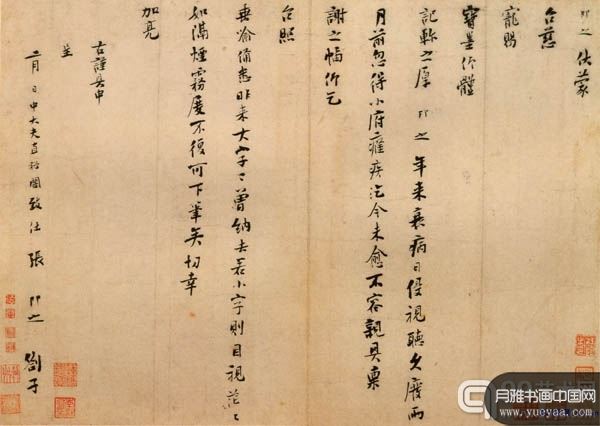 即之 伏蒙
台慈
寵賜
寶墨仰體
記軫之厚 即之 年来衰病日侵視聽久廢兩
月前忽得小府癃疾迄今未愈不容親具稟
謝之幅仰乞
台照
垂喻備悉昨来大字曾納去若小字則目視茫〻
如滿煙霧廢不復可下筆矣切幸
加亮
右謹具申
呈
二月 日中大夫直秘閣致仕張 即之 劄子
月雅书画中国网
www.yueyaa.com